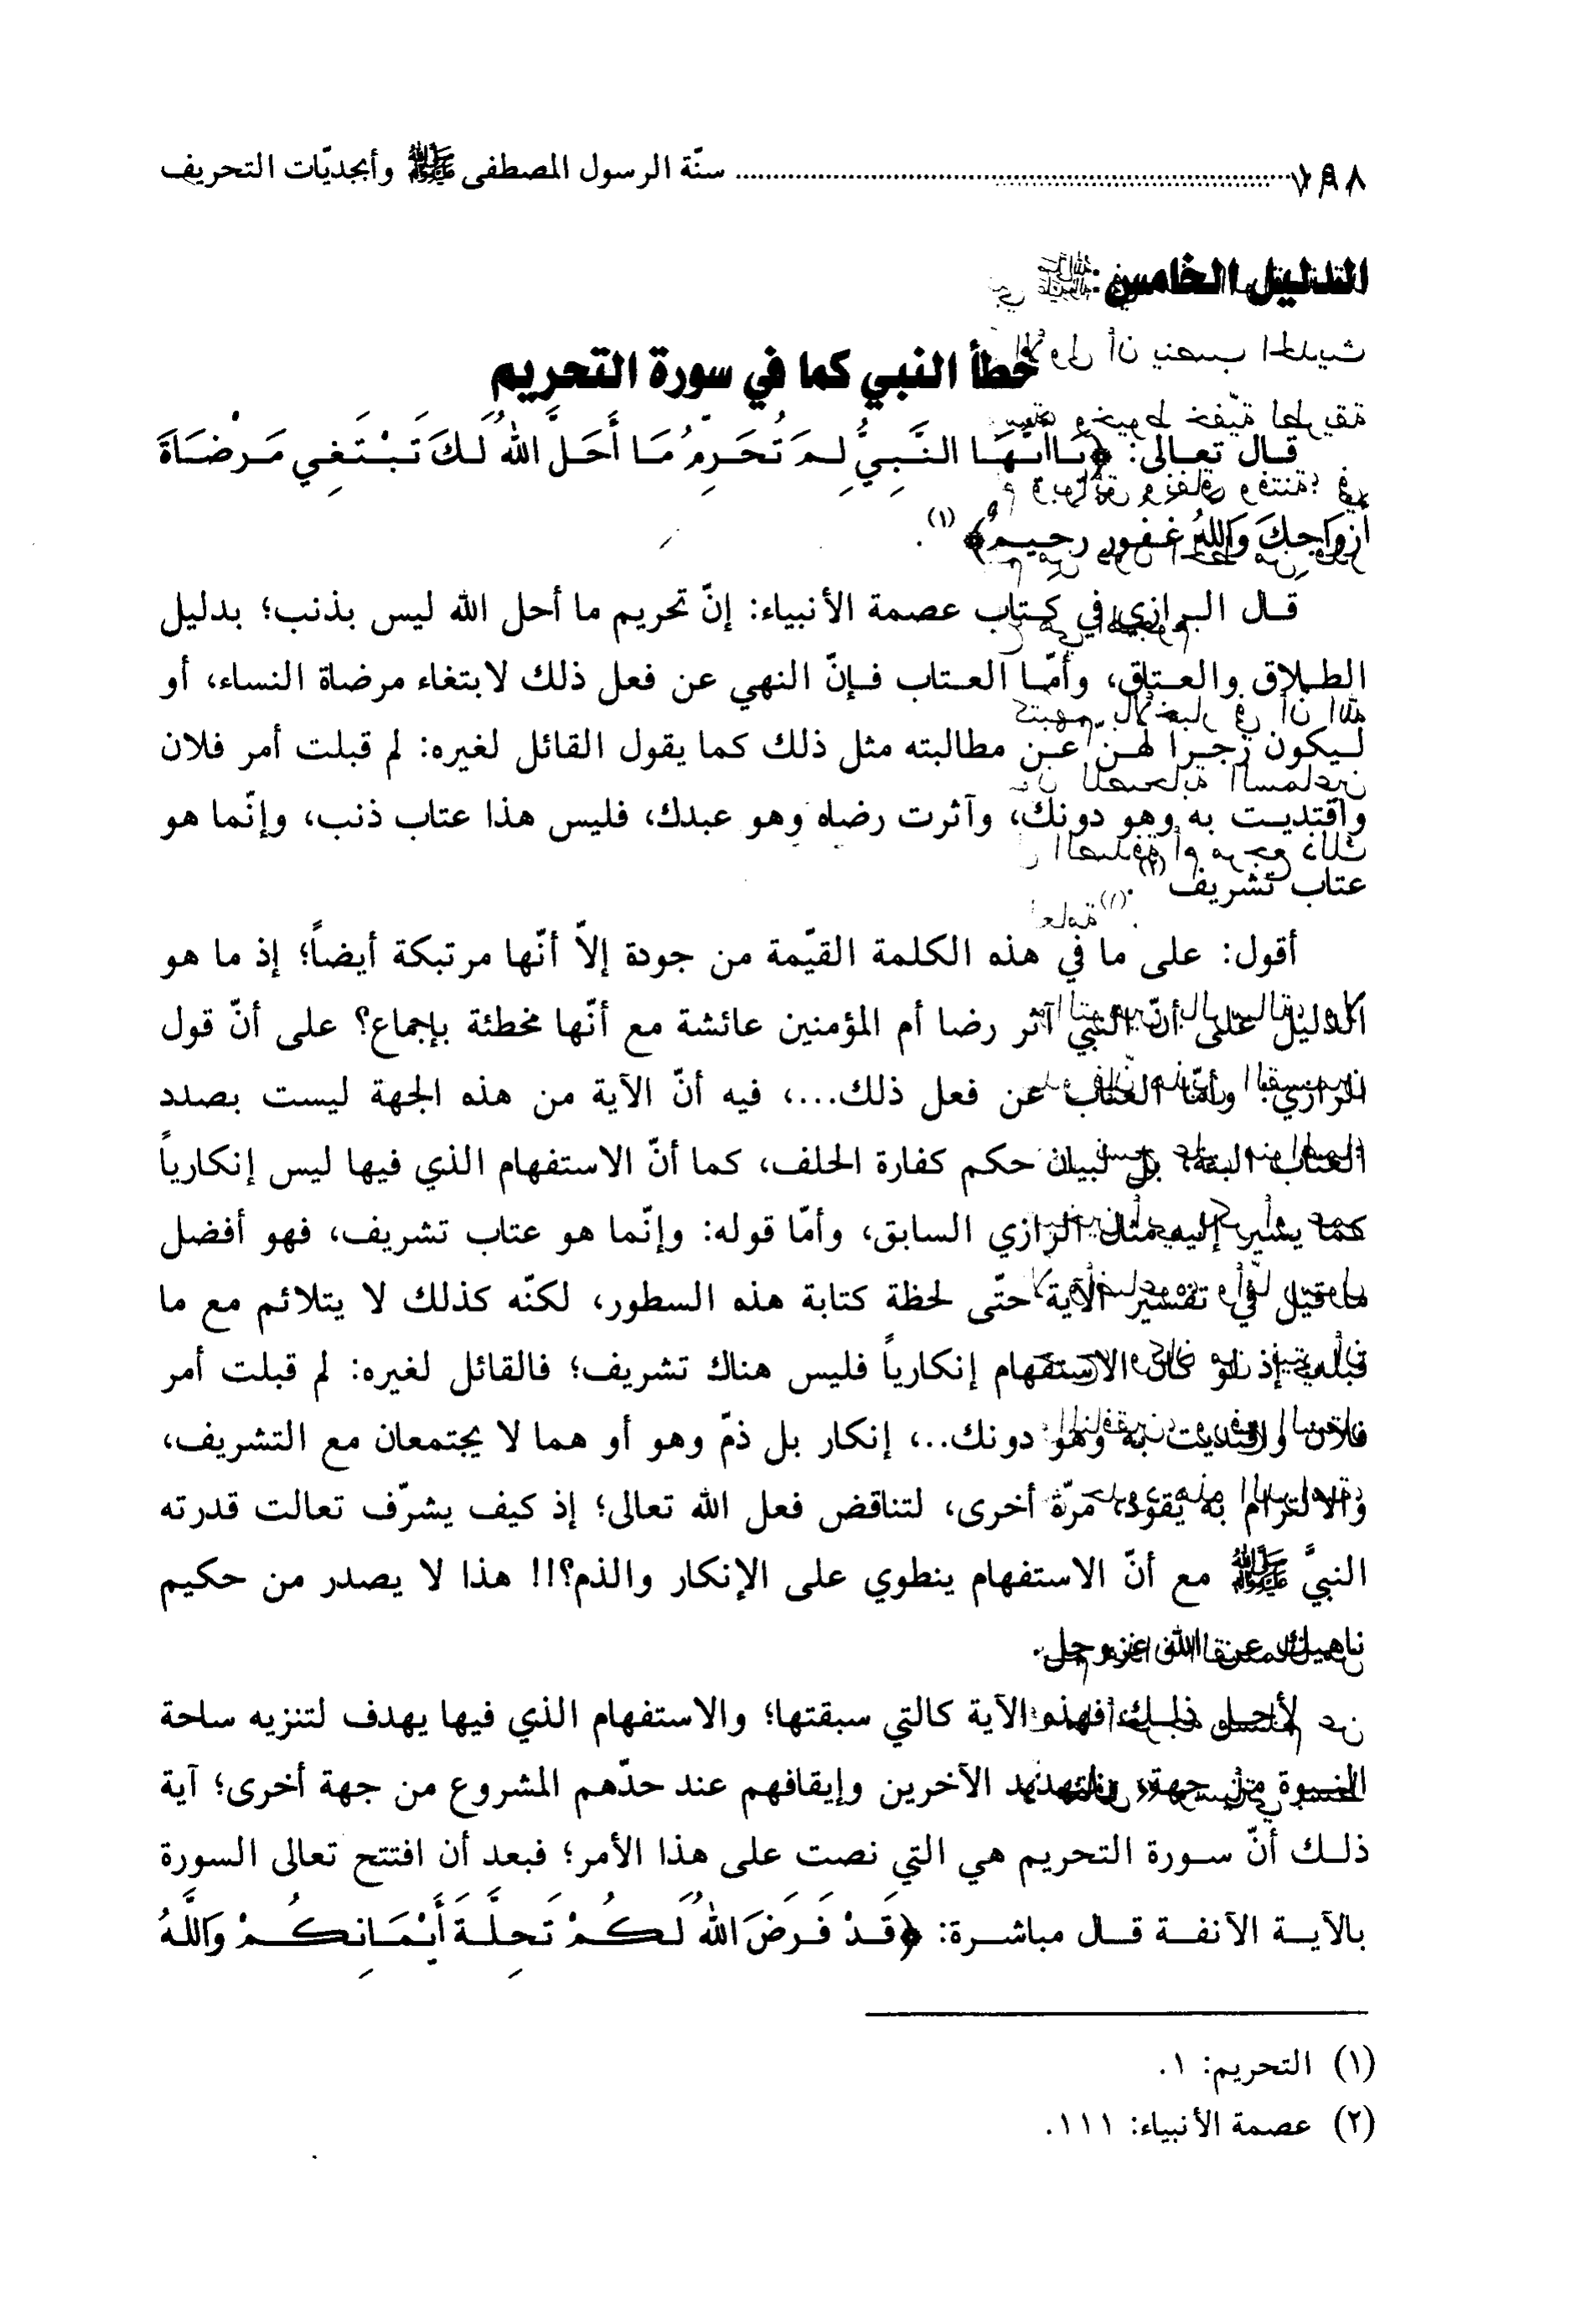 سنّة الرسول المصطفى ﷺ وأبجديّات التحريف
الدليل الخامس:
خطأ النبي كما في سورة التحريم
قال تعالى: ﴿يَاأَيُّهَا النَّبِيُّ لِمَ تُحَرِّمُ مَا أَحَلَّ اللهُ لَكَ تَبْتَغِي مَرْضَاةَ
أَزْوَاجِكَ وَاللهُ غَفُورٌ رَحِيمٌ﴾(١).
قال الرازي في كتاب عصمة الأنبياء: إنّ تحريم ما أحل الله ليس بذنب؛ بدليل
الطلاق والعتاق، وأمّا العتاب فإنّ النهي عن فعل ذلك لابتغاء مرضاة النساء، أو
ليكون زجراً لهنّ عن مطالبته مثل ذلك كما يقول القائل لغيره: لم قبلت أمر فلان
واقتديت به وهو دونك، وآثرت رضاه وهو عبدك، فليس هذا عتاب ذنب، وإنّما هو
عتاب تشريف(٢).
أقول: على ما في هذه الكلمة القيّمة من جودة إلاّ أنّها مرتبكة أيضاً؛ إذ ما هو
الدليل على أنّ النبي آثر رضا أم المؤمنين عائشة مع أنّها مخطئة بإجماع؟ على أنّ قول
الرازي: وأمّا العتاب عن فعل ذلك...، فيه أنّ الآية من هذه الجهة ليست بصدد
العتاب البتة، بل لبيان حكم كفارة الحلف، كما أنّ الاستفهام الذي فيها ليس إنكارياً
كما يشير إليه مثال الرازي السابق، وأمّا قوله: وإنّما هو عتاب تشريف، فهو أفضل
ما قيل في تفسير الآية حتّى لحظة كتابة هذه السطور، لكنّه كذلك لا يتلائم مع ما
قبله؛ إذ لو كان الاستفهام إنكارياً فليس هناك تشريف؛ فالقائل لغيره: لم قبلت أمر
فلان واقتديت به وهو دونك...، إنكار بل ذمّ وهو أو هما لا يجتمعان مع التشريف،
والالتزام به يقود، مرّة أخرى، لتناقض فعل الله تعالى؛ إذ كيف يشرّف تعالت قدرته
النبيَّ ﷺ مع أنّ الاستفهام ينطوي على الإنكار والذم؟!! هذا لا يصدر من حكيم
ناهيك عن الله عزوجل.
لأجل ذلك، فهذه الآية كالتي سبقتها؛ والاستفهام الذي فيها يهدف لتنزيه ساحة
النبوة من جهة، ولتهديد الآخرين وإيقافهم عند حدّهم المشروع من جهة أخرى؛ آية
ذلك أنّ سورة التحريم هي التي نصت على هذا الأمر؛ فبعد أن افتتح تعالى السورة
بالآية الآنفة قال مباشرة: ﴿قَدْ فَرَضَ اللهُ لَكُمْ تَحِلَّةَ أَيْمَانِكُمْ وَاللَّهُ
(١) التحريم: ١.
(٢) عصمة الأنبياء: ١١١.